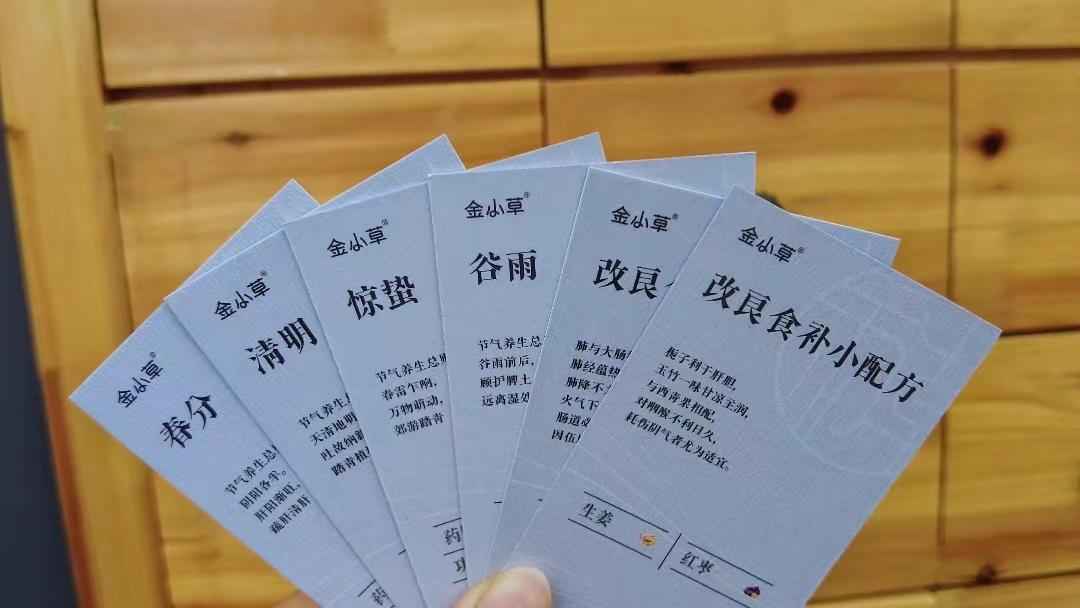 金小草®
春分
节气养生总
阴阳各半。
肝阳渐旺，
疏肝清肝
药
金小草®
清明
节气养生总
天清地明
吐故纳新
踏青植
金小草®
惊蛰
节气养生总
春雷乍响，
万物萌动，
郊游踏青
药
功
金小草®
谷雨
节气养生总
谷雨前后，
顾护脾土
远离湿处
金小草®
改良
肺与大肠
肺经蕴热
肺降不
火气下
肠道
因伍
金小草®
改良食补小配方
栀子利于肝胆，
玉竹一味甘凉主润，
与西青果相配，
对咽喉不利日久，
耗伤阴气者尤为适宜。
生姜
红枣